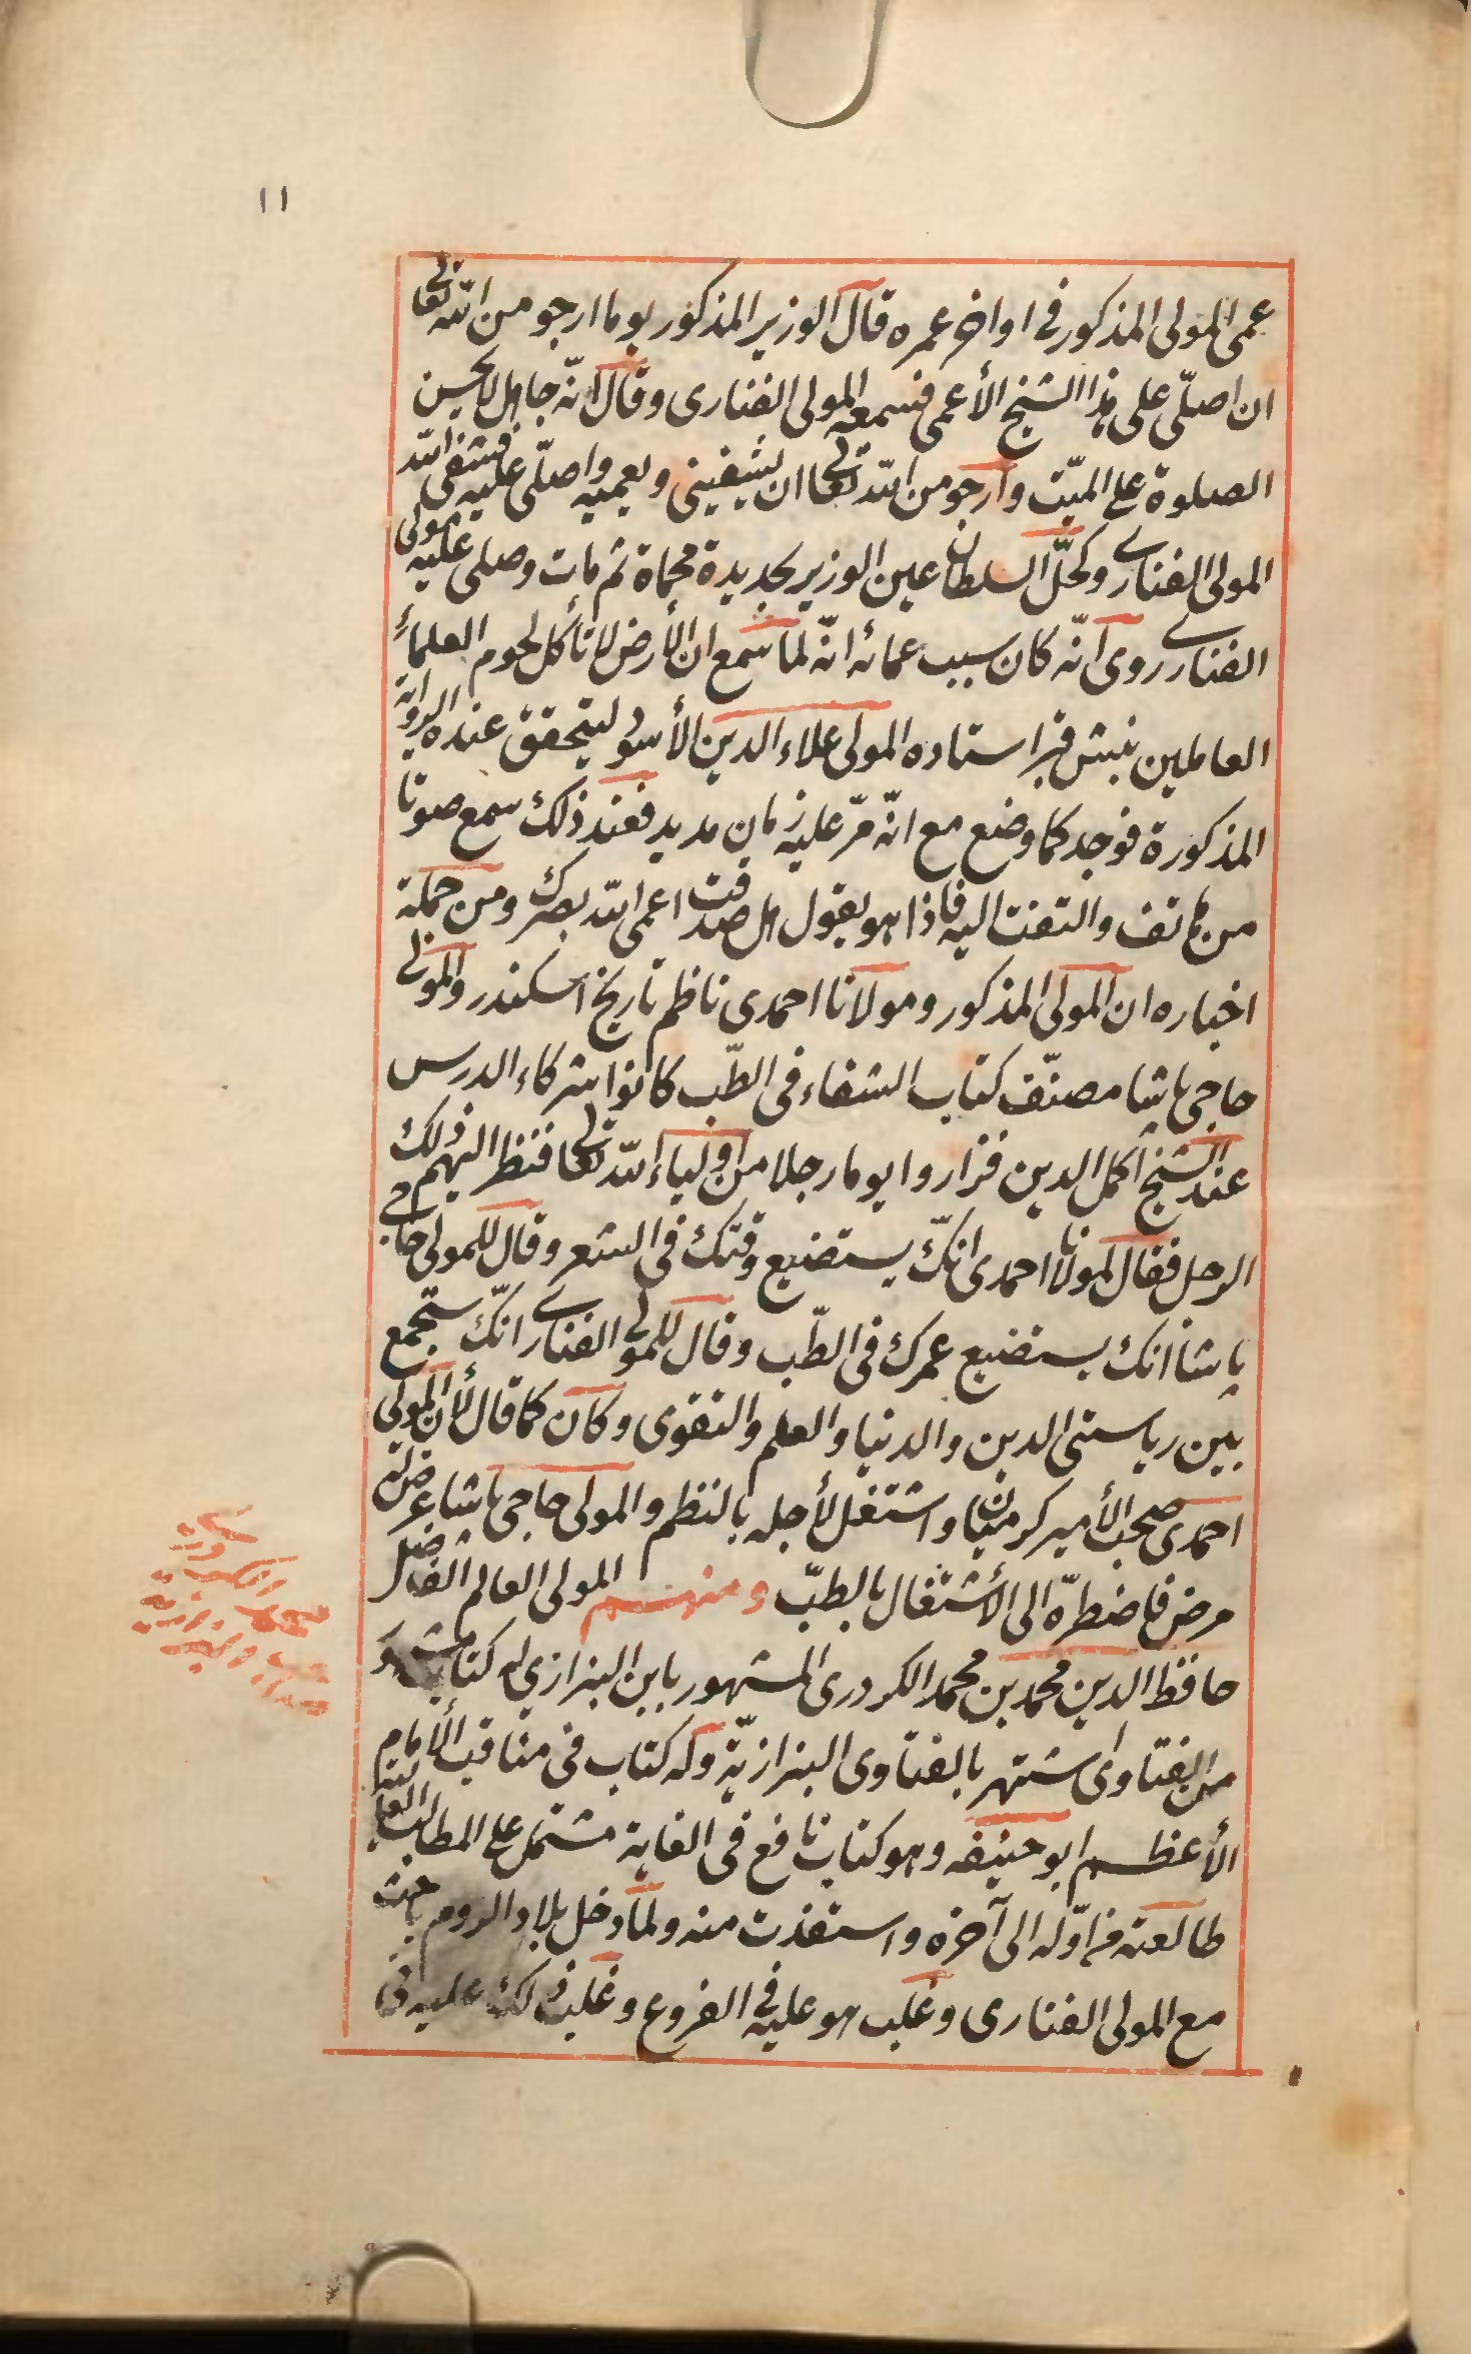 ١١
عمى المولى المذكور فى اواخر عمره قال الوزير المذكور يوما ارجو من الله تعالى
ان اصلّى على هذا الشيخ الأعمى فسمعه المولى الفنارى وقال انّه جاهل لا يحسن
الصلوة على الميّت وارجو من الله تعالى ان يشفينى ويعميه واصلّى عليه فشفى الله
المولى الفنارى وكحّل السلطان عين الوزير بحديدة محماة ثم مات وصلى عليه مولى
الفنارى روى انّه كان سبب عمائه انّه لما سمع ان الأرض لا تأكل لحوم العلماء
العاملين نبش قبر استاده المولى علاء الدين الأسود ليتحقق عنده الرواية
المذكورة فوجد كما وضع مع انّه مرّ عليه زمان مديد فعند ذلك سمع صوتا
من هاتف والتفت اليه فاذا هو يقول هل صدقت اعمى الله بصرك ومن جملة
اخباره ان المولى المذكور ومولانا احمدى ناظم تاريخ اسكندر والمولى
حاجى پاشا مصنّف كتاب الشفاء فى الطّب كانوا شركاء الدرس
عند الشيخ اكمل الدين فزاروا يوما رجلا من اولياء الله تعالى فنظر اليهم ذلك
الرجل فقال لمولانا احمدى انكّ ستضيع وقتك فى الشعر وقال للمولى حاجى
پاشا انك ستضيع عمرك فى الطّب وقال للمولى الفنارى انكّ ستجمع
بين رياستى الدين والدنيا والعلم والتقوى وكان كما قال لأن المولى
احمدى صحب الأمير كرميان واشتغل لأجله بالنظم والمولى حاجى پاشا عرض له
مرض فاضطرّه الى الأشتغال بالطبّ ومنهم المولى العالم الفاضل
حافظ الدين محمد بن محمد الكردرى المشهور بابن البزازي له كتاب مشهور
من الفتاوى اشتهر بالفتاوى البزازيّة وله كتاب فى مناقب الأمام
الأعظم ابو حنيفه وهو كتاب نافع فى الغاية مشتمل على المطالب العالية
طالعته من اوّله الى آخره واستفدت منه ولما دخل بلاد الروم باحث
مع المولى الفنارى وغلب هو عليه فى الفروع وغلب ذلك عليه فى